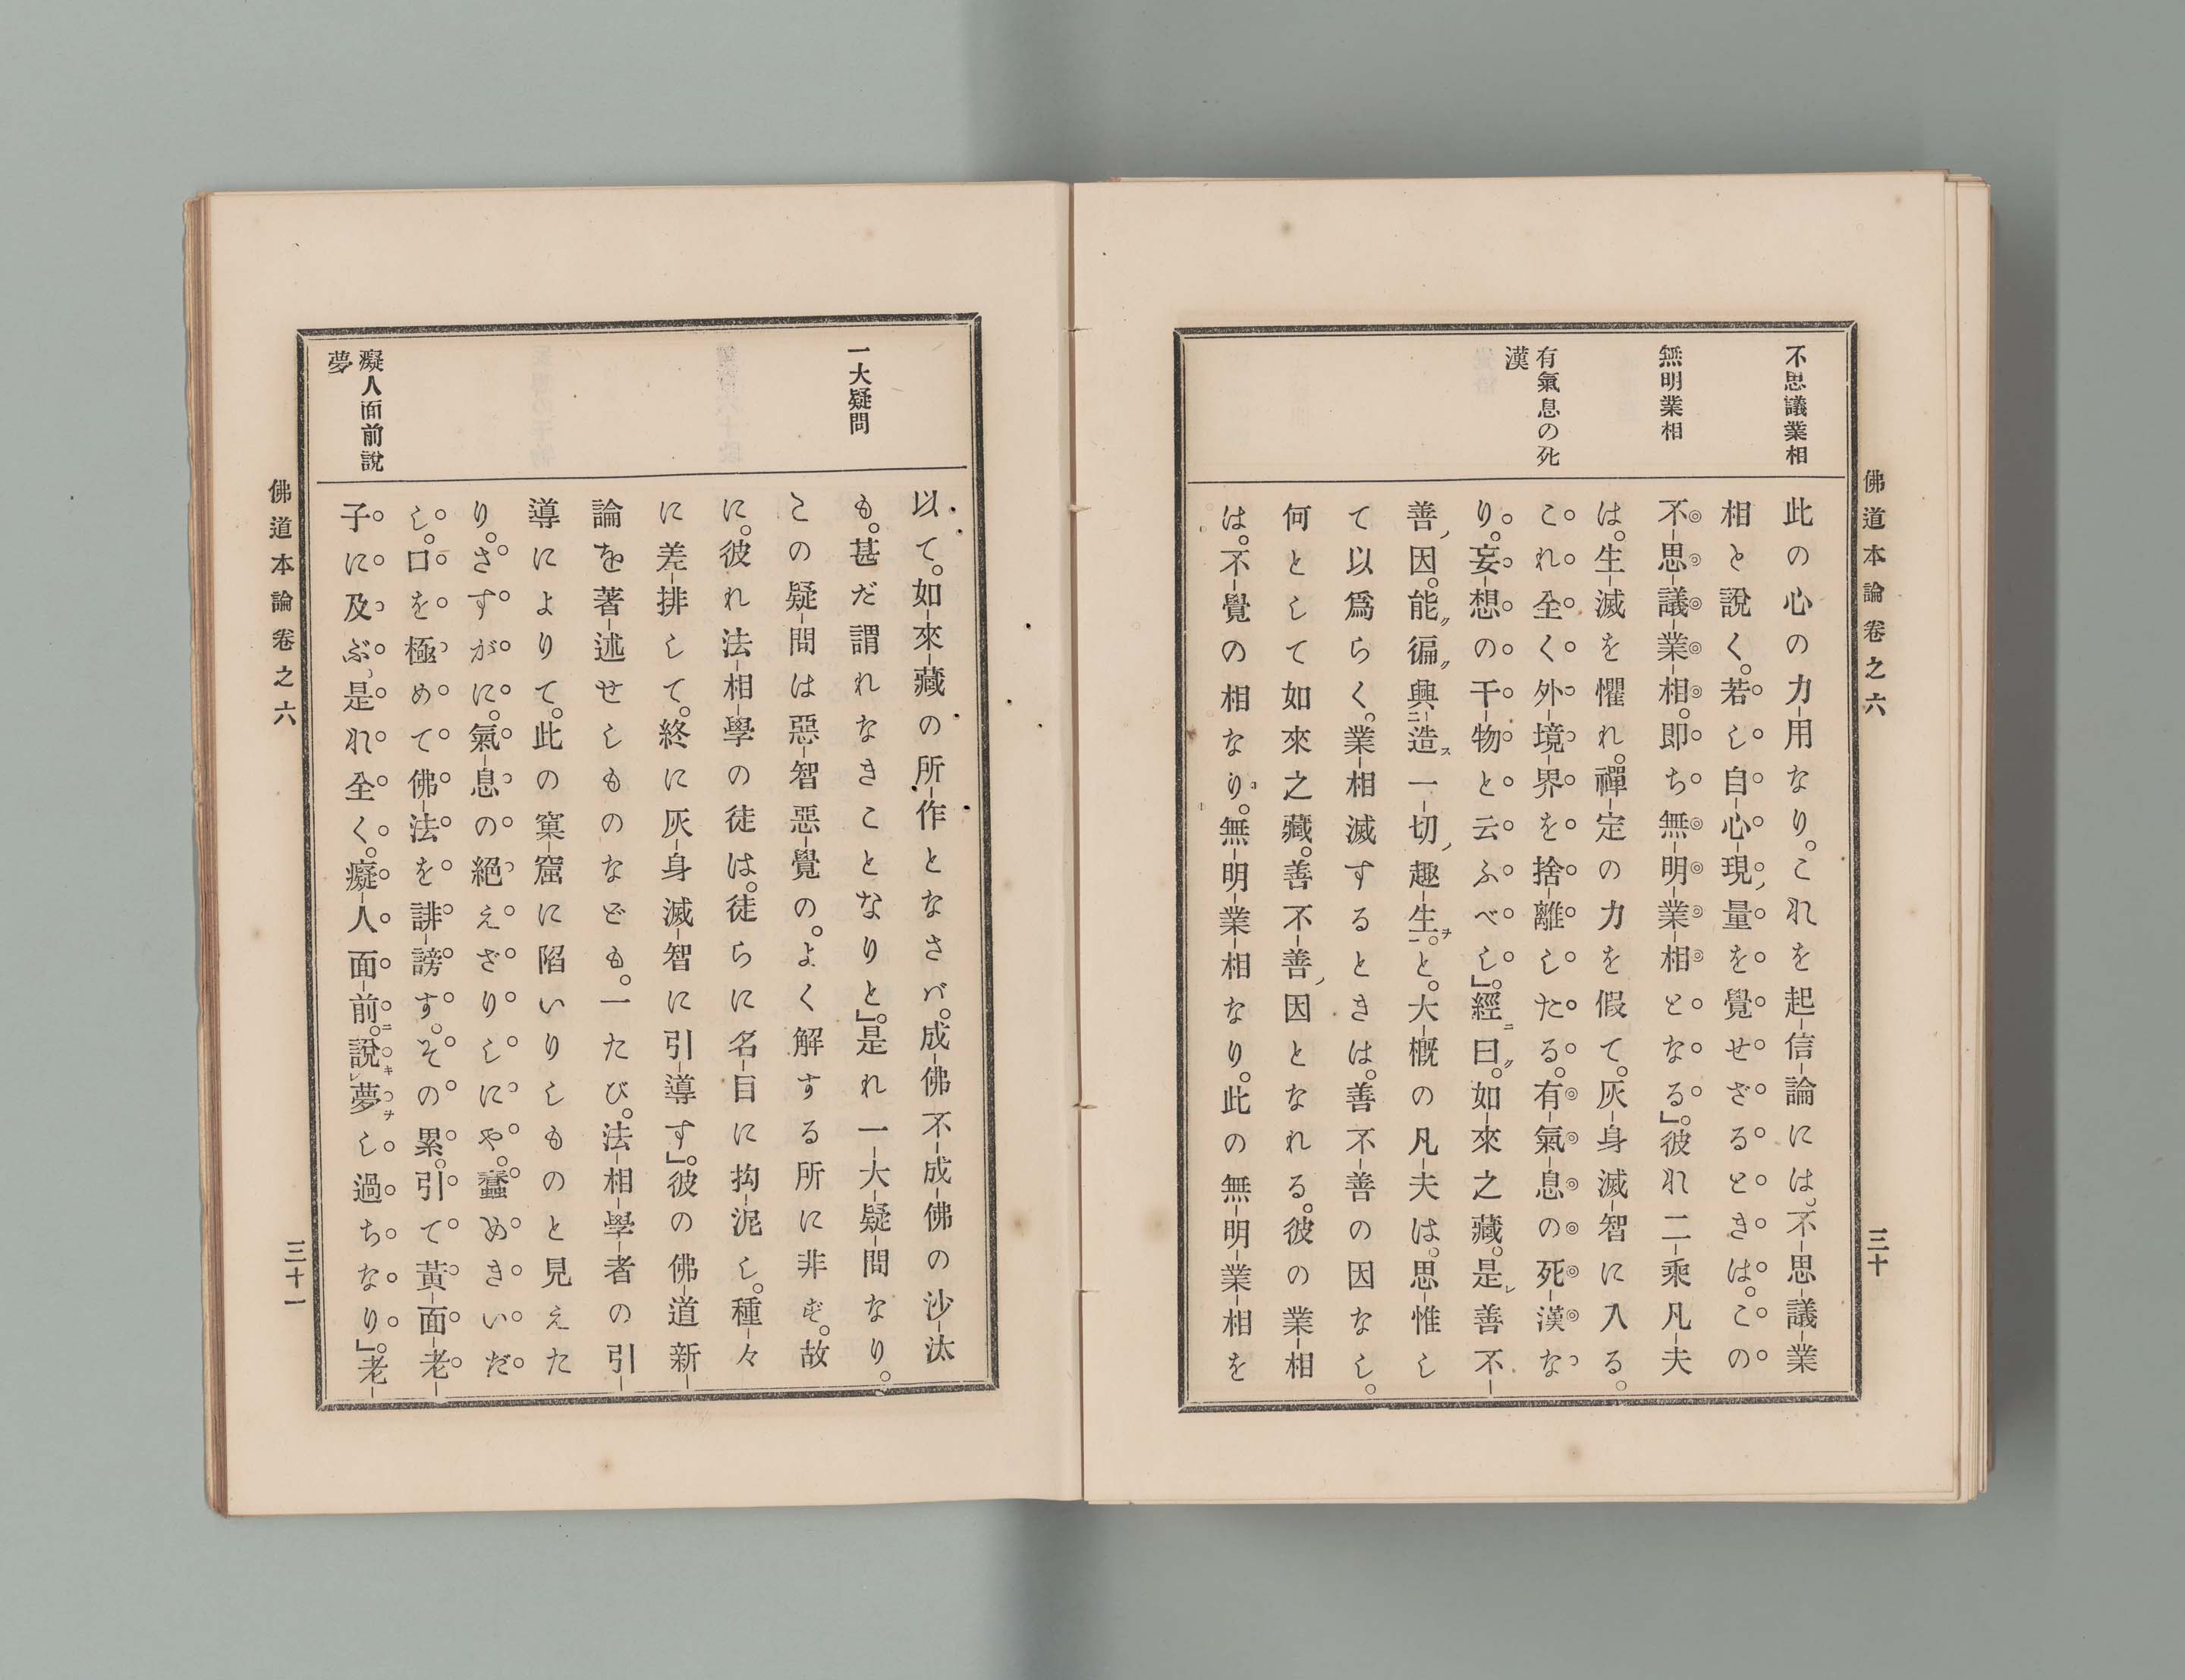 佛道本論卷之六
三十
不思議業相
無明業相
有氣息の死
漢
此の心の力用なり。これを起信論には。不思議業
相と說く。若し自心現ノ量を覺せざるときは。この
不思議業相。即ち無明業相となる」。彼れ二乘凡夫
は。生滅を懼れ。禪定の力を假て。灰身滅智に入る。
これ全く外境界を捨離したる。有氣息の死漢な
り。妄想の干物と云ふべし」。經ニ曰ク。如來之藏。是レ善不
善ノ因。能ク徧ク興二造ス一切ノ趣生ヲ一。と。大概の凡夫は。思惟し
て以爲らく。業相滅するときは。善不善の因なし。
何として如來之藏。善不善ノ因となれる。彼の業相
は。不覺の相なり。無明業相なり。此の無明業相を
一大疑問
癡人面前說
夢
以て。如來藏の所作となさバ。成佛不成佛の沙汰
も。甚だ謂れなきことなりと」。是れ一大疑問なり。
この疑問は惡智惡覺の。よく解する所に非ず。故
に。彼れ法相學の徒は。徒らに名目に拘泥し。種々
に差排して。終に灰身滅智に引導す」。彼の佛道新
論を著述せしものなども。一たび。法相學者の引
導によりて。此の窠窟に陷いりしものと見えた
り。さすがに。氣息の絕えざりしにや。蠢めきいだ
し。口を極めて佛法を誹謗す。その累。引て黃面老
子に及ぶ。是れ全く。癡人面前ニ。說キレ夢ヲし過ちなり」。老
佛道本論卷之六
三十一